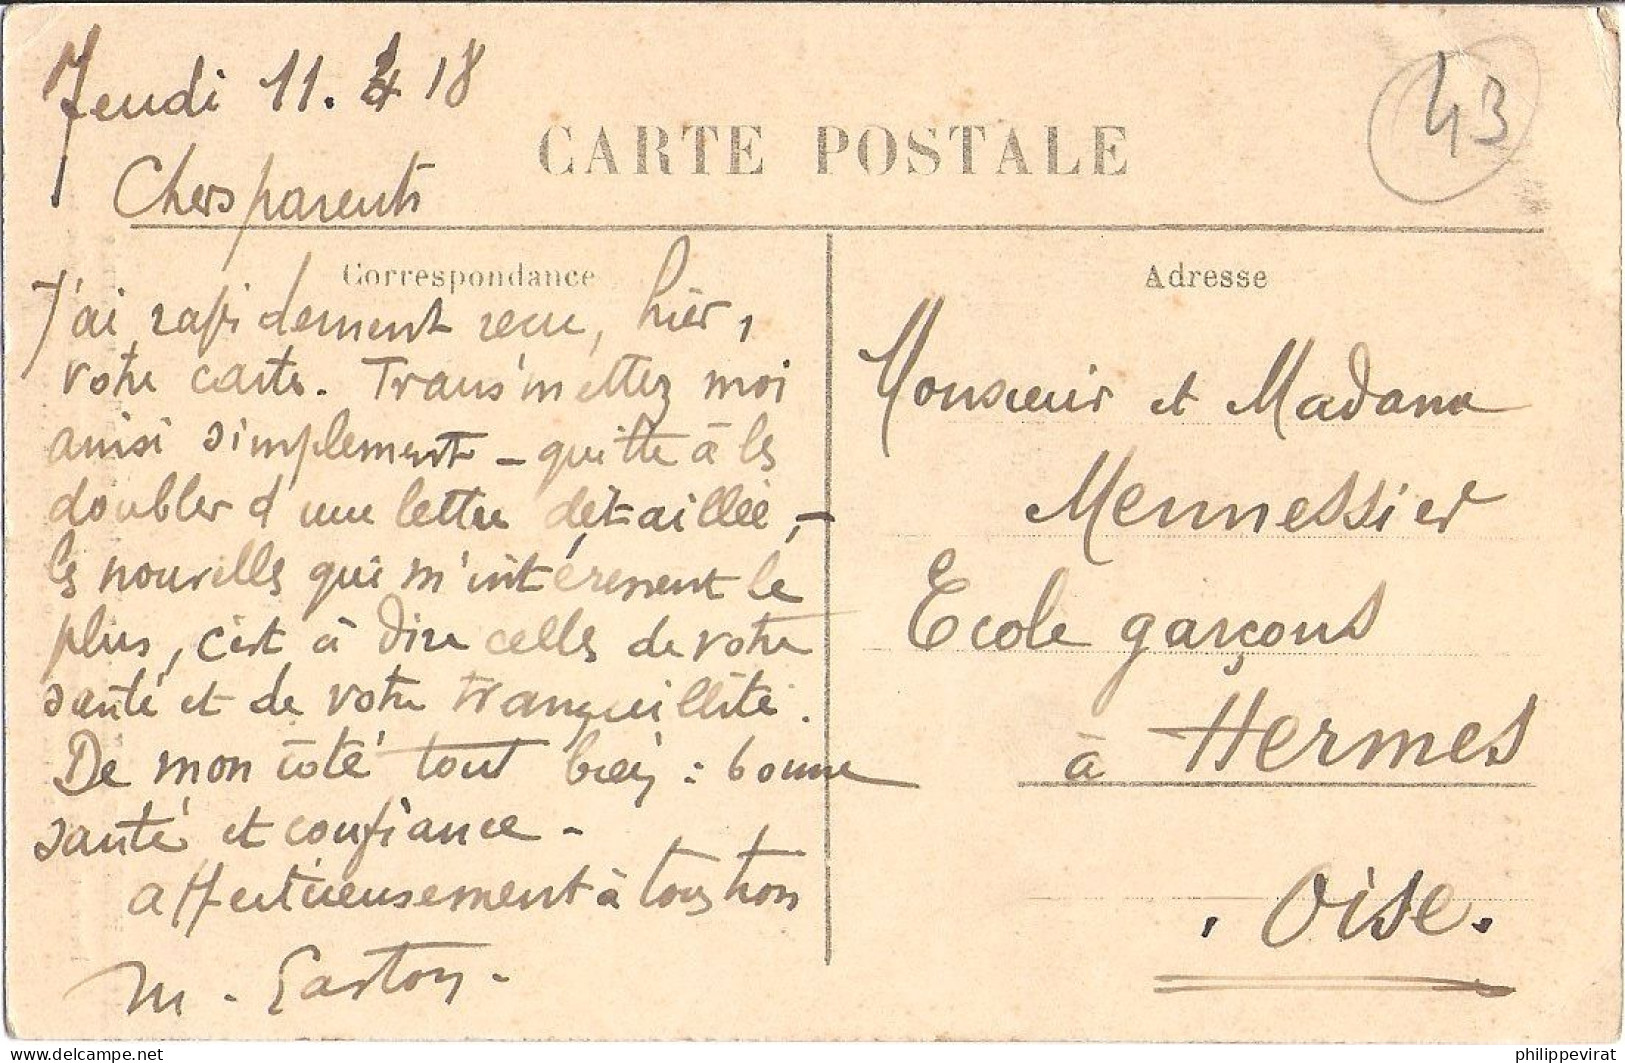 Jeudi 11. 4 18
43
CARTE POSTALE
Chers parents
Correspondance
J'ai rapidement recu, hier,
votre carte. Transmettez moi
ainsi simplement - quitte à les
doubler d'une lettre détaillée, -
les nouvelles qui m'intéressent le
plus, c'est à dire celles de votre
santé et de votre tranquillité.
De mon côté tout bien : bonne
santé et confiance -
affectueusement à tous trois
M. Gaston.
Adresse
Monsieur et Madame
Mennessier
Ecole garçons
à Hermes
. Oise.
delcampe.net
philippevirat